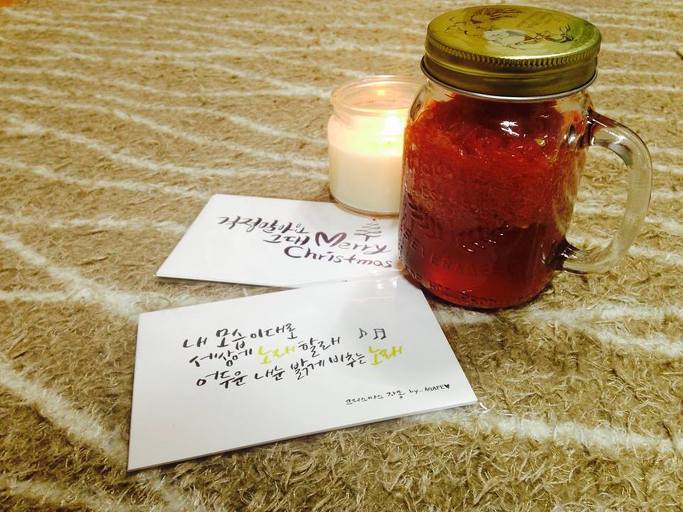 걱정말아요
그대 Merry
Christmas
내 모습 이대로
세상에 노래 할래
어두운 내눈 밝게 비추는 노래
크리스마스 자몽 by. AGAPE♥